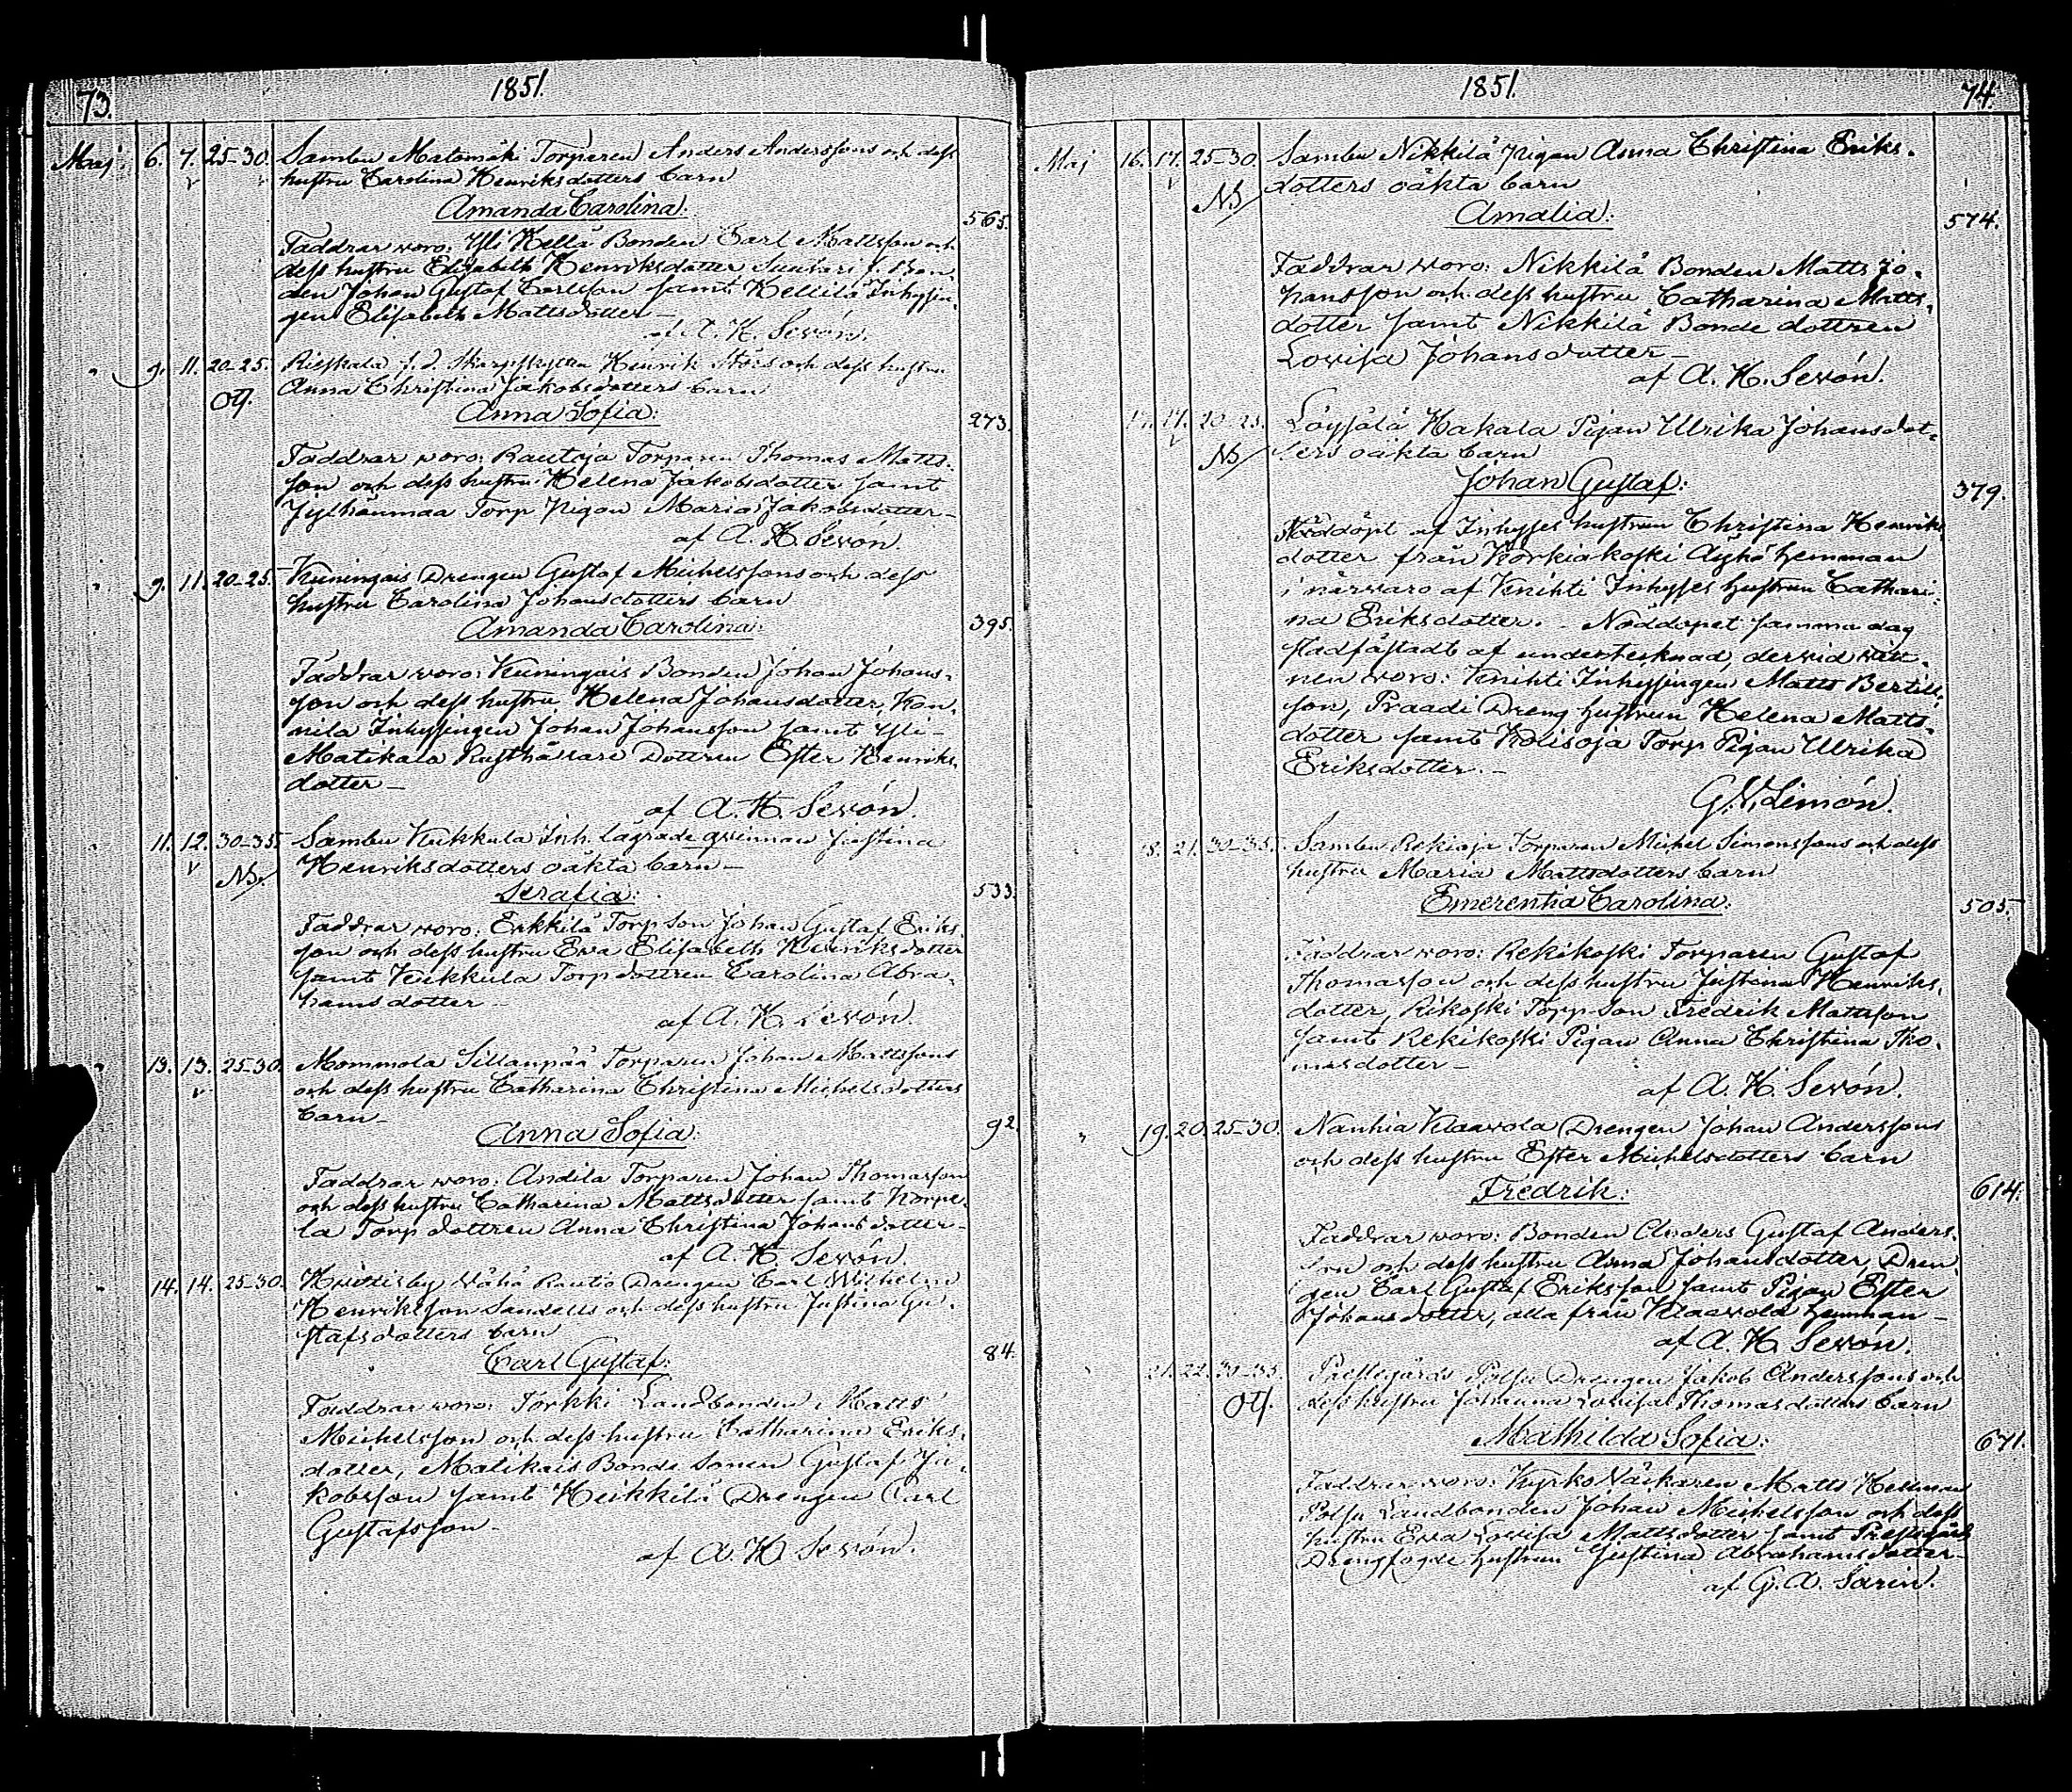 73. 1851.
Maj 6. 7. 25-30. Sambu Matomäki Torparen Anders Anderssons och dess
hustru Carolina Henriksdotters barn
Amanda Carolina: 565.
Faddrar woro: Yli Kellä Bonden Carl Mattsson och
dess hustru Elisabeth Henriksdotter, Bon-
den Johan Gustaf Carlsson samt Inhysin-
gen Elisabeth Mattsdotter
af A. H. Sevón.
" 9. 11. 20-25. f. d. Skarpskytten Henrik och dess hustru
Anna Christina Jakobsdotters barn
Oä.
Anna Sofia: 273.
Faddrar woro: Rautoja Torparen Thomas Matts-
son och dess hustru Helena Jakobsdotter samt
Torp Pigan Maria Jakobsdotter
af A. H. Sevón.
" 9. 11. 20-25. Kuningais Drengen Gustaf Michelssons och dess
hustru Carolina Johansdotters barn
Amanda Carolina: 395.
Faddrar woro: Kuningais Bonden Johan Johans-
son och dess hustru Helena Johansdotter, Kon-
nila Inhysingen Johan Johansson samt Yli-
Matikala Rusthållare Dottren Ester Henriks-
dotter
af A. H. Sevón.
" 11. 12. 30-35. Sambu Kukkula Inh. lägrade qwinnan Justina
Henriksdotters oäkta barn
Nb.
Serafia: 533.
Faddrar woro: Erkkilä Torp Son Johan Gustaf Eriks-
son och dess hustru Eva Elisabeth Henriksdotter
samt Kukkula Torp dottren Carolina Abra-
hamsdotter
af A. H. Sevón.
" 13. 13. 25-30. Mommola Sillanpää Torparen Johan Mattssons
och dess hustru Catharina Christina Michelsdotters
barn
Anna Sofia: 92.
Faddrar woro: Andila Torparen Johan Thomasson
och dess hustru Catharina Mattsdotter samt Korpe-
la Torp dottren Anna Christina Johansdotter
af A. H. Sevón.
" 14. 14. 25-30. Wähä Rautio Drengen Carl Wilhelm
Henriksson Sandells och dess hustru Justina Gu-
stafsdotters barn
Carl Gustaf: 84.
Faddrar woro: Torkki Landbonden Matts
Michelsson och dess hustru Catharina Eriks-
dotter, Matikais Bonde Sonen Gustaf Ja-
kobsson samt Heikkilä Drengen Carl
Gustafsson
af A. H. Sevón.
1851. 74.
Maj 16. 17. 25-30. Sambu Nikkilä Pigan Anna Christina Eriks-
dotters oäkta barn
Nb
Amalia: 574.
Faddrar woro: Nikkilä Bonden Matts Jo-
hansson och dess hustru Catharina Matts-
dotter samt Nikkilä Bonde dottren
Lovisa Johansdotter
af A. H. Sevón.
17. 17. 20-25. Löysälä Hakala Pigan Ulrika Johansdot-
ters oäkta barn
Nb
Johan Gustaf: 379.
Nöddöpt af Inhysses hustrun Christina Henriks
dotter från Korkiakoski hemman
i närwaro af Knihti Inhysses hustrun Cathari-
na Eriksdotter. - Nöddopet samma dag
stadfästadt af undertecknad, derwid witt-
nen woro: Knihti Inhysingen Matts Bertils-
son, Praadi Dreng hustrun Helena Matts-
dotter samt Kolisoja Torp Pigan Ulrika
Eriksdotter.
G. V. Limón.
18. 21. 30-35. Sambu Rekioja Torparen Michel Simonssons och dess
hustru Maria Mattsdotters barn
Emerentia Carolina: 505.
Faddrar woro: Rekikoski Torparen Gustaf
Thomasson och dess hustru Justina Henriks-
dotter, Rikoski Torp Son Fredrik Mattsson
samt Rekikoski Pigan Anna Christina Tho-
masdotter
af A. H. Sevón.
" 19. 20. 25-30. Nanhia Klaavola Drengen Johan Anderssons
och dess hustru Ester Michelsdotters barn
Fredrik: 614.
Faddrar woro: Bonden Anders Gustaf Anders-
son och dess hustru Anna Johansdotter, Dren-
gen Carl Gustaf Eriksson samt Pigan Ester
Johansdotter, alla från Klaavola hemman
af A. H. Sevón.
21. 22. 30-35. Prestegårds Polsu Drengen Jakob Anderssons och
dess hustru Johanna Lovisa Thomasdotters barn
Oä.
Mathilda Sofia: 671.
Faddrar woro: Kyrko Wäktaren Matts Hellman
Polsu Landbonden Johan Michelsson och dess
hustru Eva Lovisa Mattsdotter samt Prestegårds
Drengfogde hustrun Justina Abrahamsdotter
af G. A. Sarin.